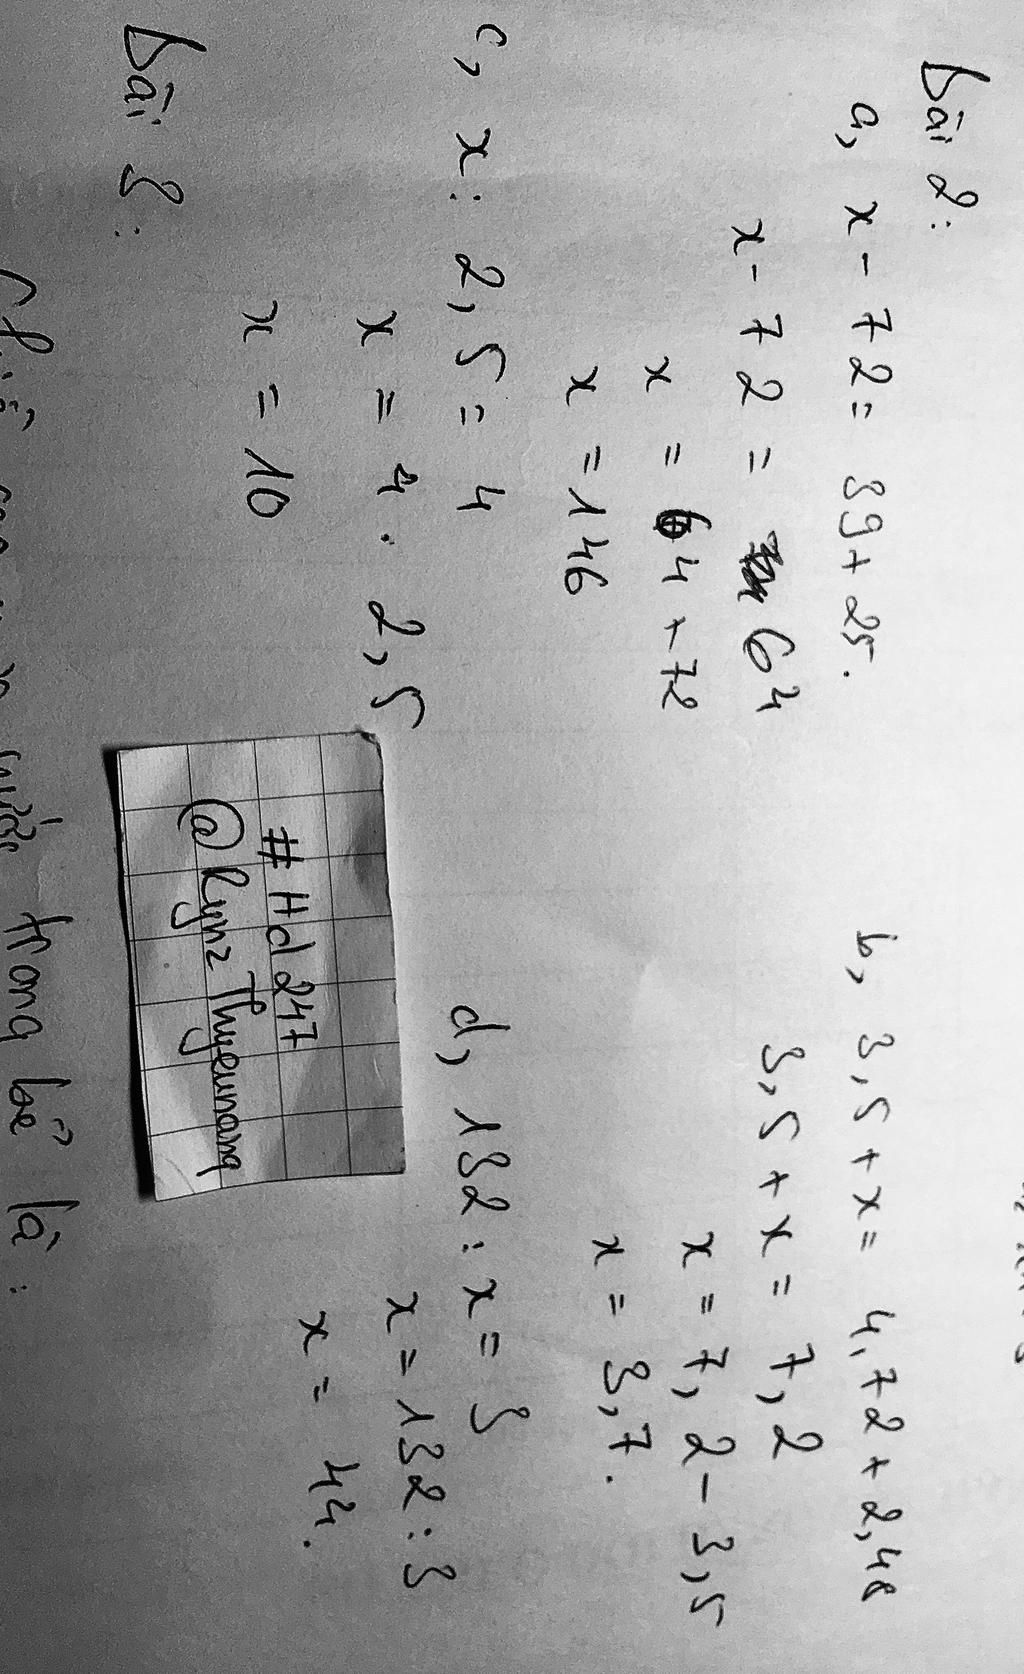 bài 2:
a, x - 72 = 39 + 25.
x - 72 = 64
x = 64 + 72
x = 146
b, 3,5 + x = 4,72 + 2,48
3,5 + x = 7,2
x = 7,2 - 3,5
x = 3,7.
c, x : 2,5 = 4
x = 4 . 2,5
x = 10
d, 132 : x = 3
x = 132 : 3
x = 44.
#Hd247
@Rynz Thyeunang
bài 3:
trong bể là :